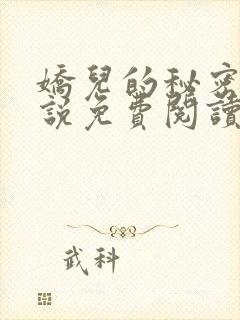 嬌兒的秘密
說免費閱讀
武科